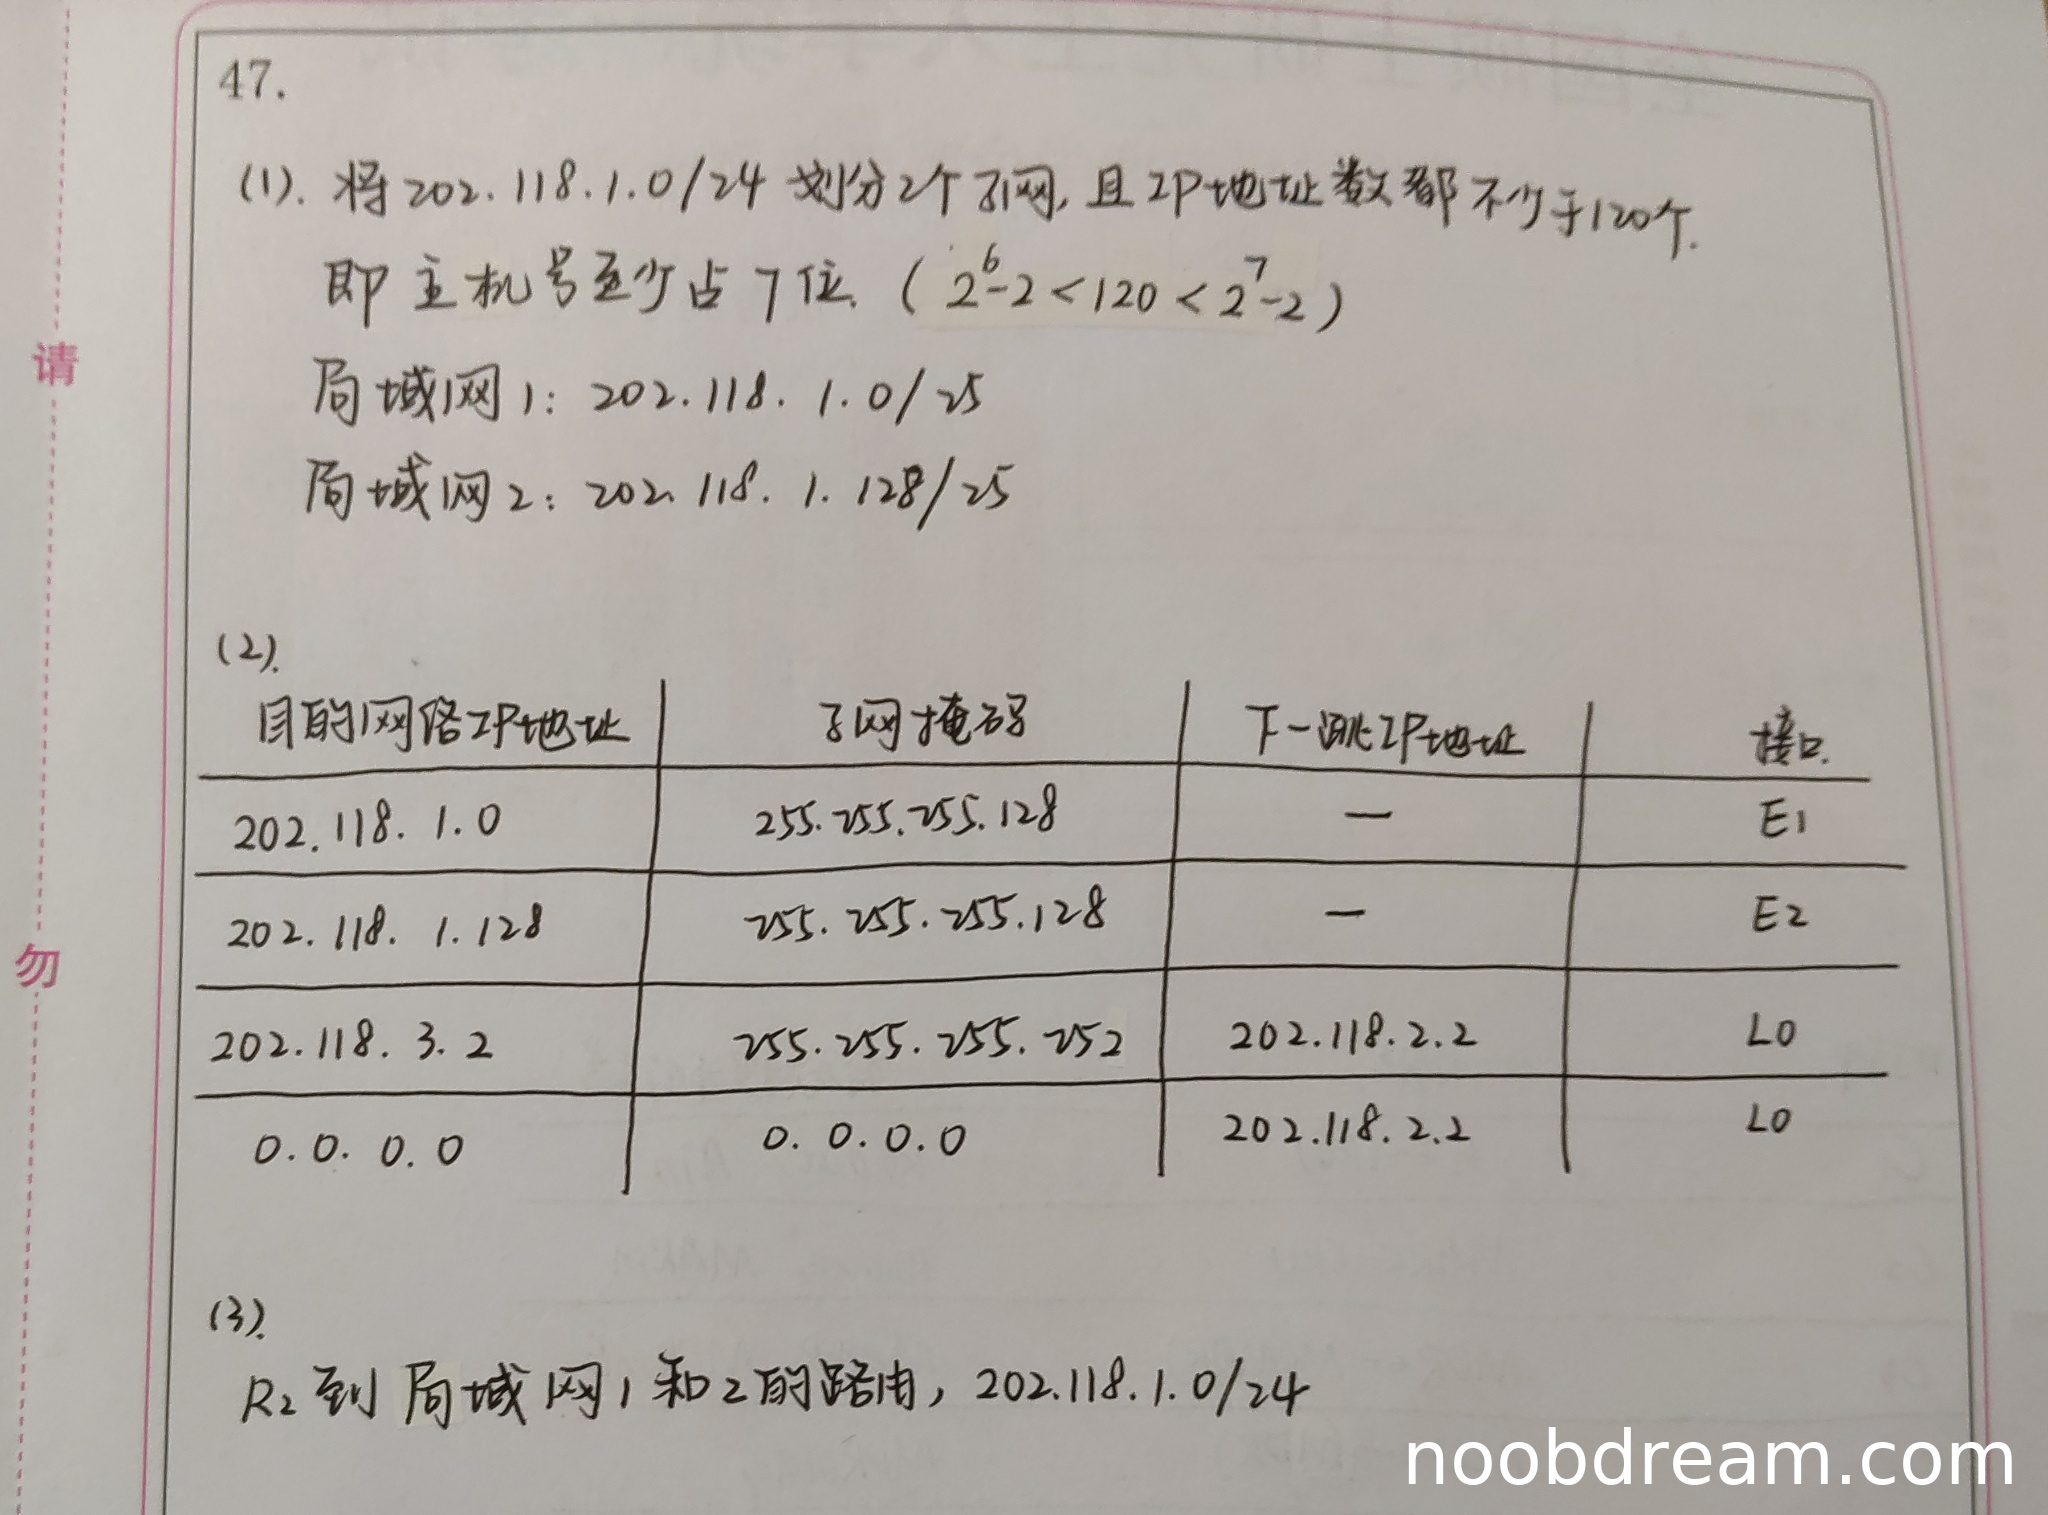 47.
(1). 将202.118.1.0/24 划分2个子网, 且IP地址数都不少于120个.
即主机号至少占7位. (2^6-2<120<2^7-2)
局域网1: 202.118.1.0/25
局域网2: 202.118.1.128/25
(2).
目的网络IP地址 子网掩码 下一跳IP地址 接口.
202.118.1.0 255.255.255.128 — E1
202.118.1.128 255.255.255.128 — E2
202.118.3.2 255.255.255.252 202.118.2.2 L0
0.0.0.0 0.0.0.0 202.118.2.2 L0
(3).
R2到局域网1和2的路由, 202.118.1.0/24
请
勿
noobdream.com